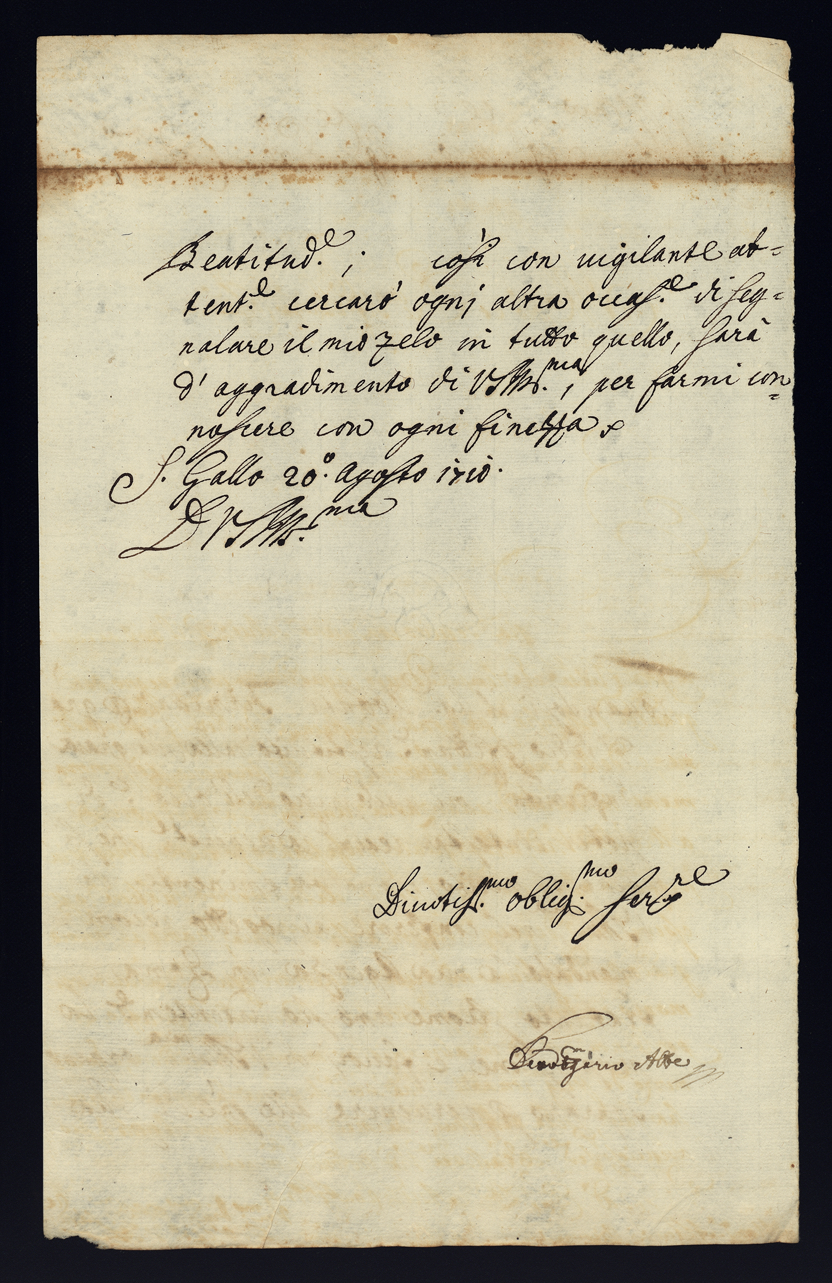 Beatitud.e ; così con uigilante at=
tent.e cercarò ogni altra occas.e di seg=
nalare il mio zelo in tutto quello, sarà
d' aggradimento di VS Ill.ma, per farmi con=
noscere con ogni finezza
S. Gallo 20.o Agosto 1710.
D VS Ill.ma
Diuotiss.mo oblig.mo ser.re
Abbe